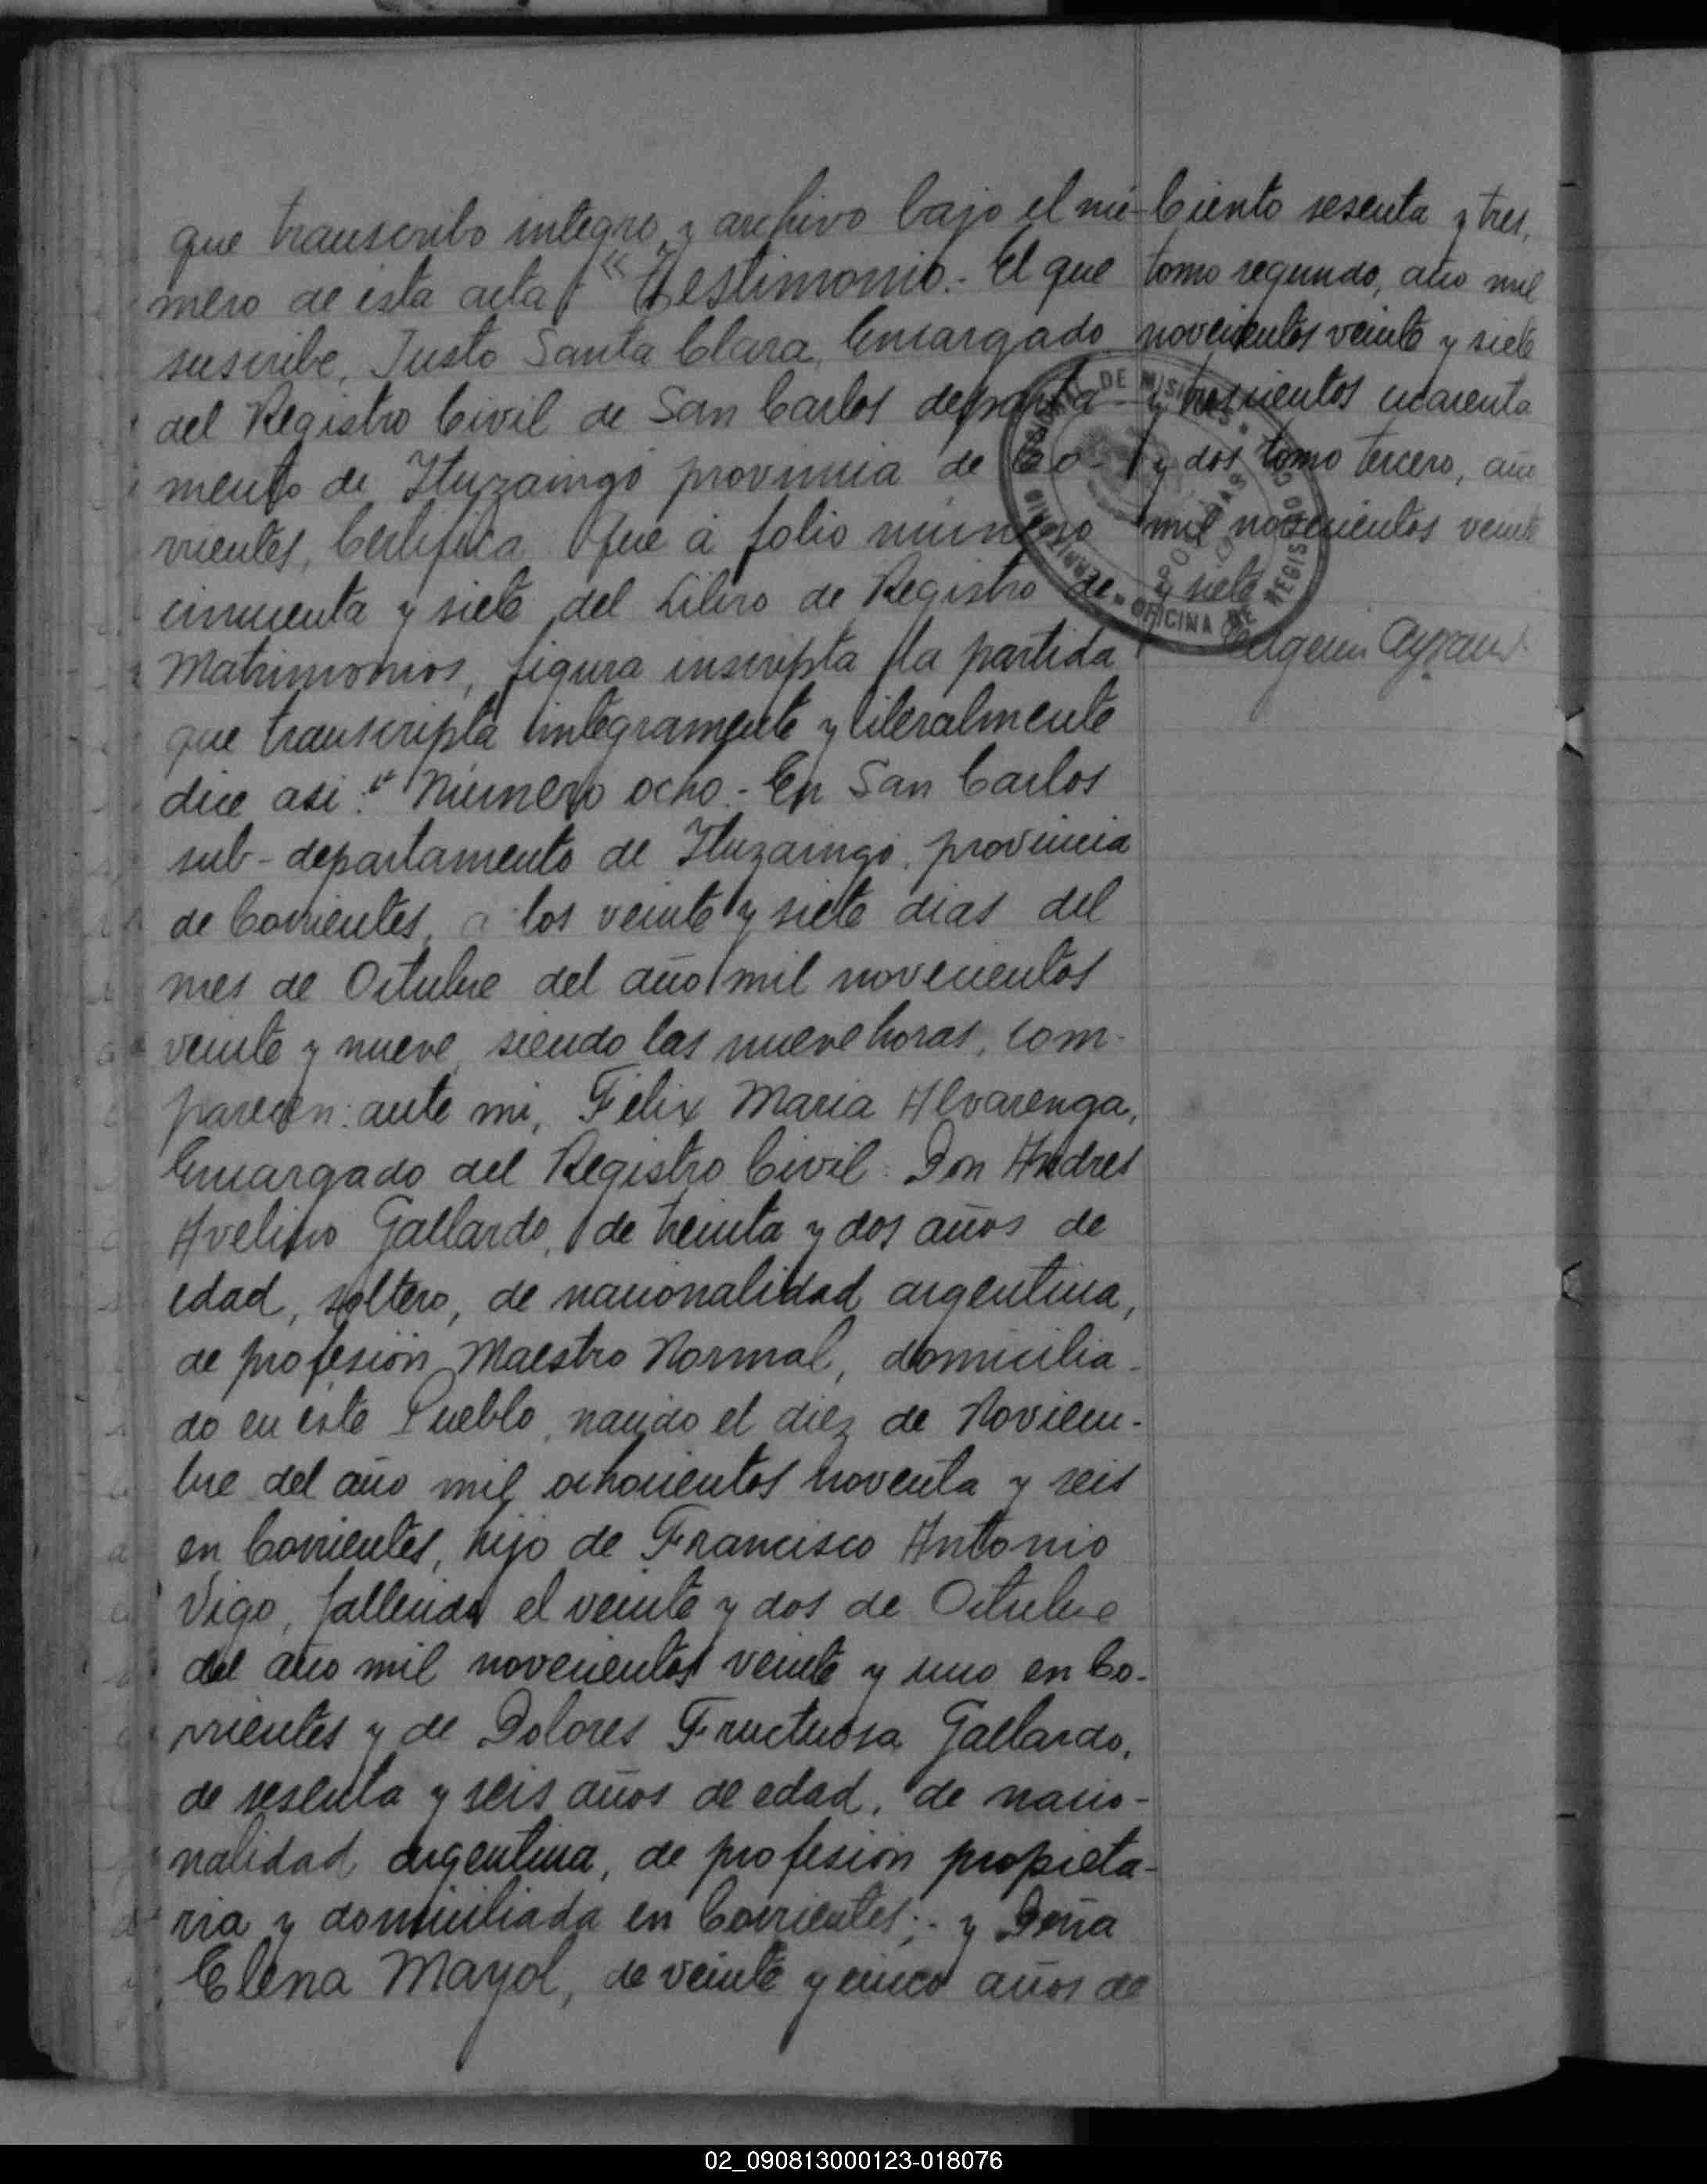 que transcribo integro, y archivo bajo el nú-
mero de esta acta: "Testimonio.- El que
suscribe, Justo Santa Clara, Encargado
del Registro Civil de San Carlos departa-
mento de Ituzaingó provincia de Co-
rrientes, Certifica: Que á folio número
cincuenta y siete del Libro de Registro de
Matrimonios, figura inscripta la partida
que transcripta integramente y literalmente
dice asi: "Número ocho.- En San Carlos
sub-departamento de Ituzaingó, provincia
de Corrientes, a los veinte y siete dias del
mes de Octubre del año mil novecientos
veinte y nueve, siendo las nueve horas, com-
parecen: ante mi, Félix Maria Alvarenga,
Encargado del Registro Civil: Don Andres
Avelino Gallardo, de treinta y dos años de
edad, soltero, de nacionalidad argentina,
de profesión Maestro Normal, domicilia-
do en este Pueblo, nacido el diez de Noviem-
bre del año mil ochocientos noventa y seis
en Corrientes, hijo de Francisco Antonio
Vigo, fallecido el veinte y dos de Octubre
del año mil novecientos veinte y uno en Co-
rrientes y de Dolores Fructuosa Gallardo,
de sesenta y seis años de edad, de nacio-
nalidad argentina, de profesión propieta-
ria y domiciliada en Corrientes;- y Doña
Elena Mayol, de veinte y cinco años de
Ciento sesenta y tres,
tomo segundo, año mil
novecientos veinte y siete
y trescientos cuarenta
y dos tomo tercero, año
mil novecientos veinte
y siete
DE MISIONES
OFICINA DE REGISTRO CIVIL
POSADAS
02_090813000123-018076